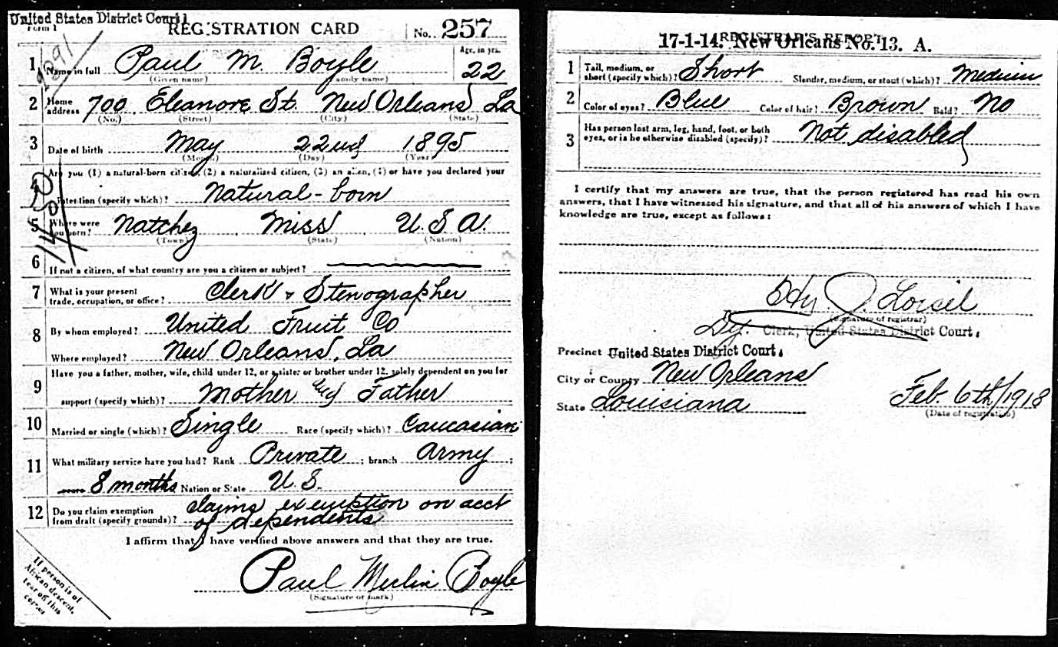 United States District Court
Form 1 REGISTRATION CARD No. 257
1 Name in full Paul M. Boyle Age, in yrs. 22
(Given name) (Family name)
2 Home address 700 Eleanore St. New Orleans La
(No.) (Street) (City) (State)
3 Date of birth May 22nd 1895
(Month) (Day) (Year)
4 Are you (1) a natural-born citizen, (2) a naturalized citizen, (3) an alien, (4) or have you declared your
intention (specify which)? Natural-born
5 Where were you born? Natchez Miss U.S.A.
(Town) (State) (Nation)
6 If not a citizen, of what country are you a citizen or subject?
7 What is your present trade, occupation, or office? Clerk & Stenographer
8 By whom employed? United Fruit Co
Where employed? New Orleans, La
9 Have you a father, mother, wife, child under 12, or a sister or brother under 12, solely dependent on you for
support (specify which)? Mother and Father
10 Married or single (which)? Single Race (specify which)? Caucasian
11 What military service have you had? Rank Private ; branch Army ;
8 months Nation or State U.S.
12 Do you claim exemption from draft (specify grounds)? claims exemption on acct
of dependents
I affirm that I have verified above answers and that they are true.
Paul Merlin Boyle
(Signature or mark)
If person is of
African descent,
tear off this
corner
REGISTRAR'S REPORT
17-1-14. New Orleans No. 13. A.
1 Tall, medium, or short (specify which)? Short Slender, medium, or stout (which)? Medium
2 Color of eyes? Blue Color of hair? Brown Bald? No
3 Has person lost arm, leg, hand, foot, or both
eyes, or is he otherwise disabled (specify)? Not disabled
I certify that my answers are true, that the person registered has read his own
answers, that I have witnessed his signature, and that all of his answers of which I have
knowledge are true, except as follows:
J. Loisel
(Signature of registrar)
Dy. Clerk, United States District Court.
Precinct United States District Court.
City or County New Orleans
State Louisiana Feb. 6th/1918
(Date of registration)